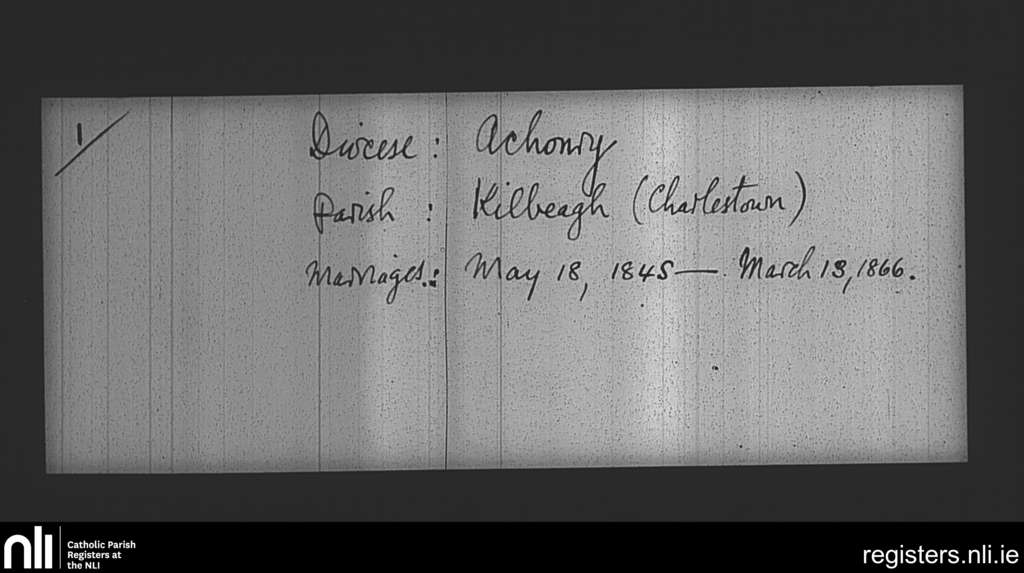 1/
Diocese : Achonry
Parish : Kilbeagh (Charlestown)
Marriages : May 18, 1845 — March 13, 1866.
nli
Catholic Parish
Registers at
the NLI
registers.nli.ie